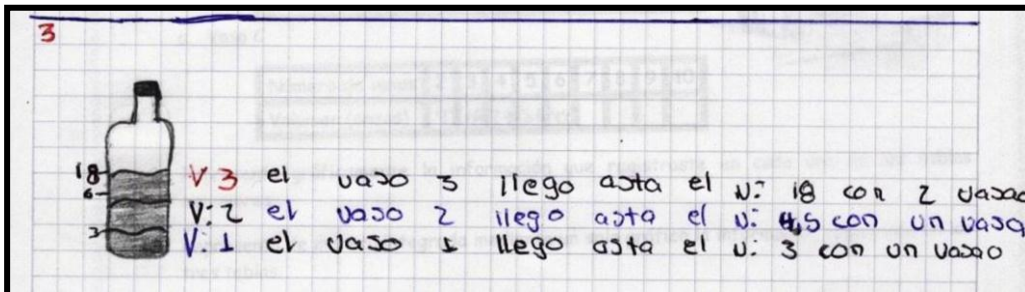 3
18
6
3
V 3 el vaso 3 llego asta el v: 18 con 2 vasao
V: 2 el vaso 2 llego asta el v: 4,5 con un vaso
V: 1 el vaso 1 llego asta el v: 3 con un vasao